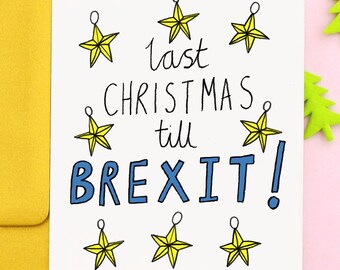 last
CHRISTMAS
till
BREXIT!